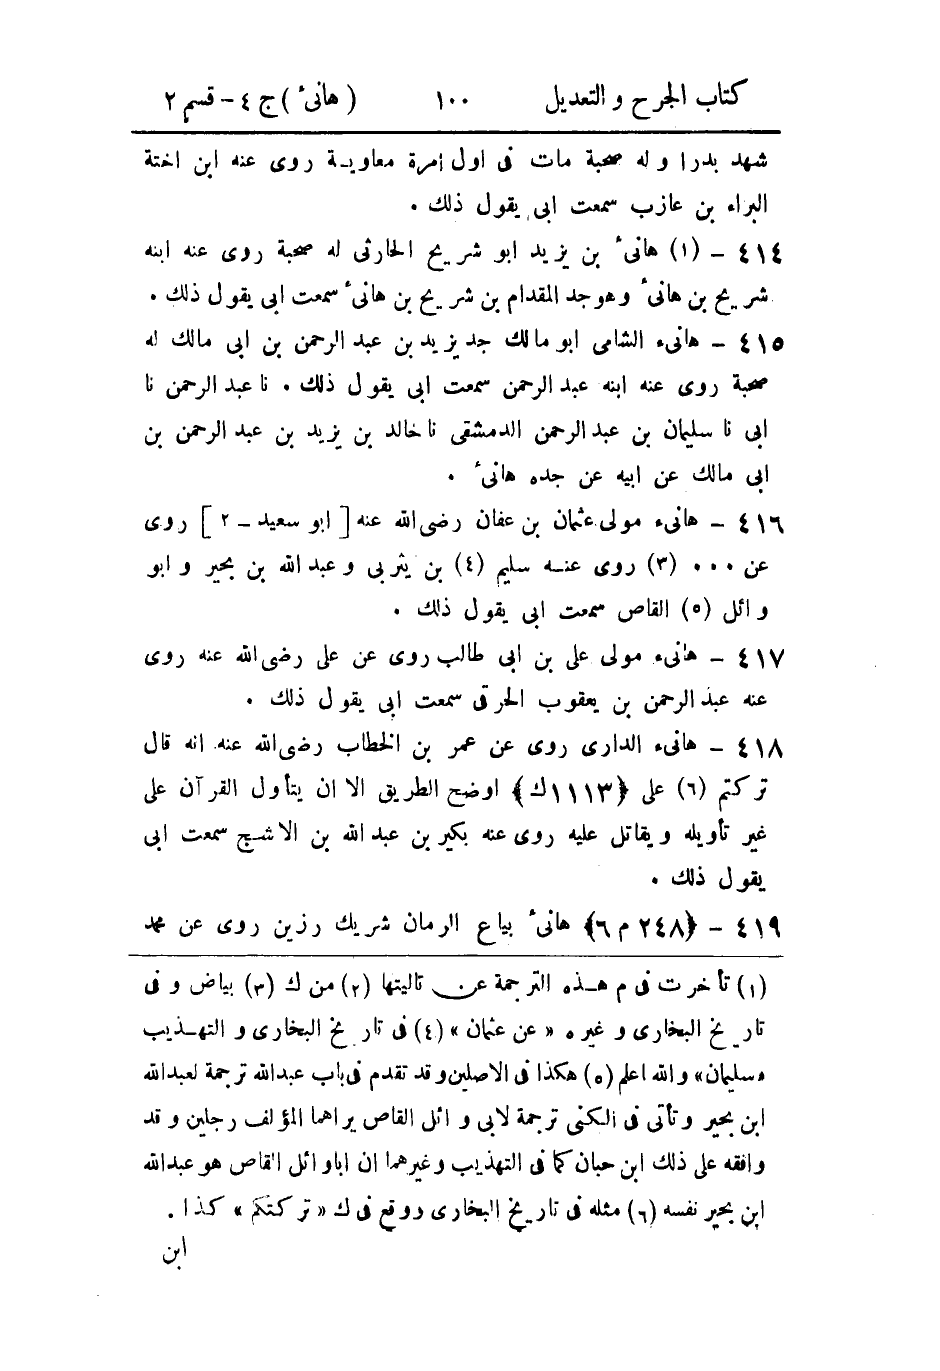 كتاب الجرح و التعديل ١٠٠ (هانئ) ج ٤ - قسم ٢
شهد بدرا وله صحبة مات فى اول إمرة معاوية روى عنه ابن اختة
البراء بن عازب سمعت ابى يقول ذلك .
٤١٤ - (١) هانئ بن يزيد ابو شريح الحارثى له صحبة روى عنه ابنه
شريح بن هانئ وهوجد المقدام بن شريح بن هانئ سمعت ابى يقول ذلك .
٤١٥ - هانىء الشامى ابو مالك جد يزيد بن عبد الرحمن بن ابى مالك له
صحبة روى عنه ابنه عبد الرحمن سمعت ابى يقول ذلك . نا عبد الرحمن نا
ابى نا سليمان بن عبد الرحمن الدمشقى نا خالد بن يزيد بن عبد الرحمن بن
ابى مالك عن ابيه عن جده هانئ .
٤١٦ - هانىء مولى عثمان بن عفان رضى الله عنه [ ابو سعيد - ٢ ] روى
عن ... (٣) روى عنه سليم (٤) بن يثربى و عبد الله بن بحير و ابو
وائل (٥) القاص سمعت ابى يقول ذلك .
٤١٧ - هانىء مولى على بن ابى طالب روى عن على رضى الله عنه روى
عنه عبد الرحمن بن يعقوب الحرقى سمعت ابى يقول ذلك .
٤١٨ - هانىء الدارى روى عن عمر بن الخطاب رضى الله عنه انه قال
تركتم (٦) على ﴿١١١٣ك﴾ اوضح الطريق الا ان يتأول القرآن على
غير تأويله و يقاتل عليه روى عنه بكير بن عبد الله بن الاشج سمعت ابى
يقول ذلك .
٤١٩ - ﴿٢٤٨ م ٦﴾ هانئ بياع الرمان شريك رزين روى عن محمد
(١) تأخرت فى م هذه الترجمة عن تاليتها (٢) من ك (٣) بياض و فى
تاريخ البخارى و غيره « عن عثمان » (٤) فى تاريخ البخارى و التهذيب
«سليمان» والله اعلم (٥) هكذا فى الاصلين و قد تقدم فى باب عبدالله ترجمة لعبدالله
ابن بحير و تأتى فى الكنى ترجمة لابى وائل القاص يراهما المؤلف رجلين و قد
وافقه على ذلك ابن حبان كما فى التهذيب وغيرهما ان اباوائل القاص هو عبدالله
ابن بحير نفسه (٦) مثله فى تاريخ البخارى ووقع فى ك «تركتكم» كذا .
ابن